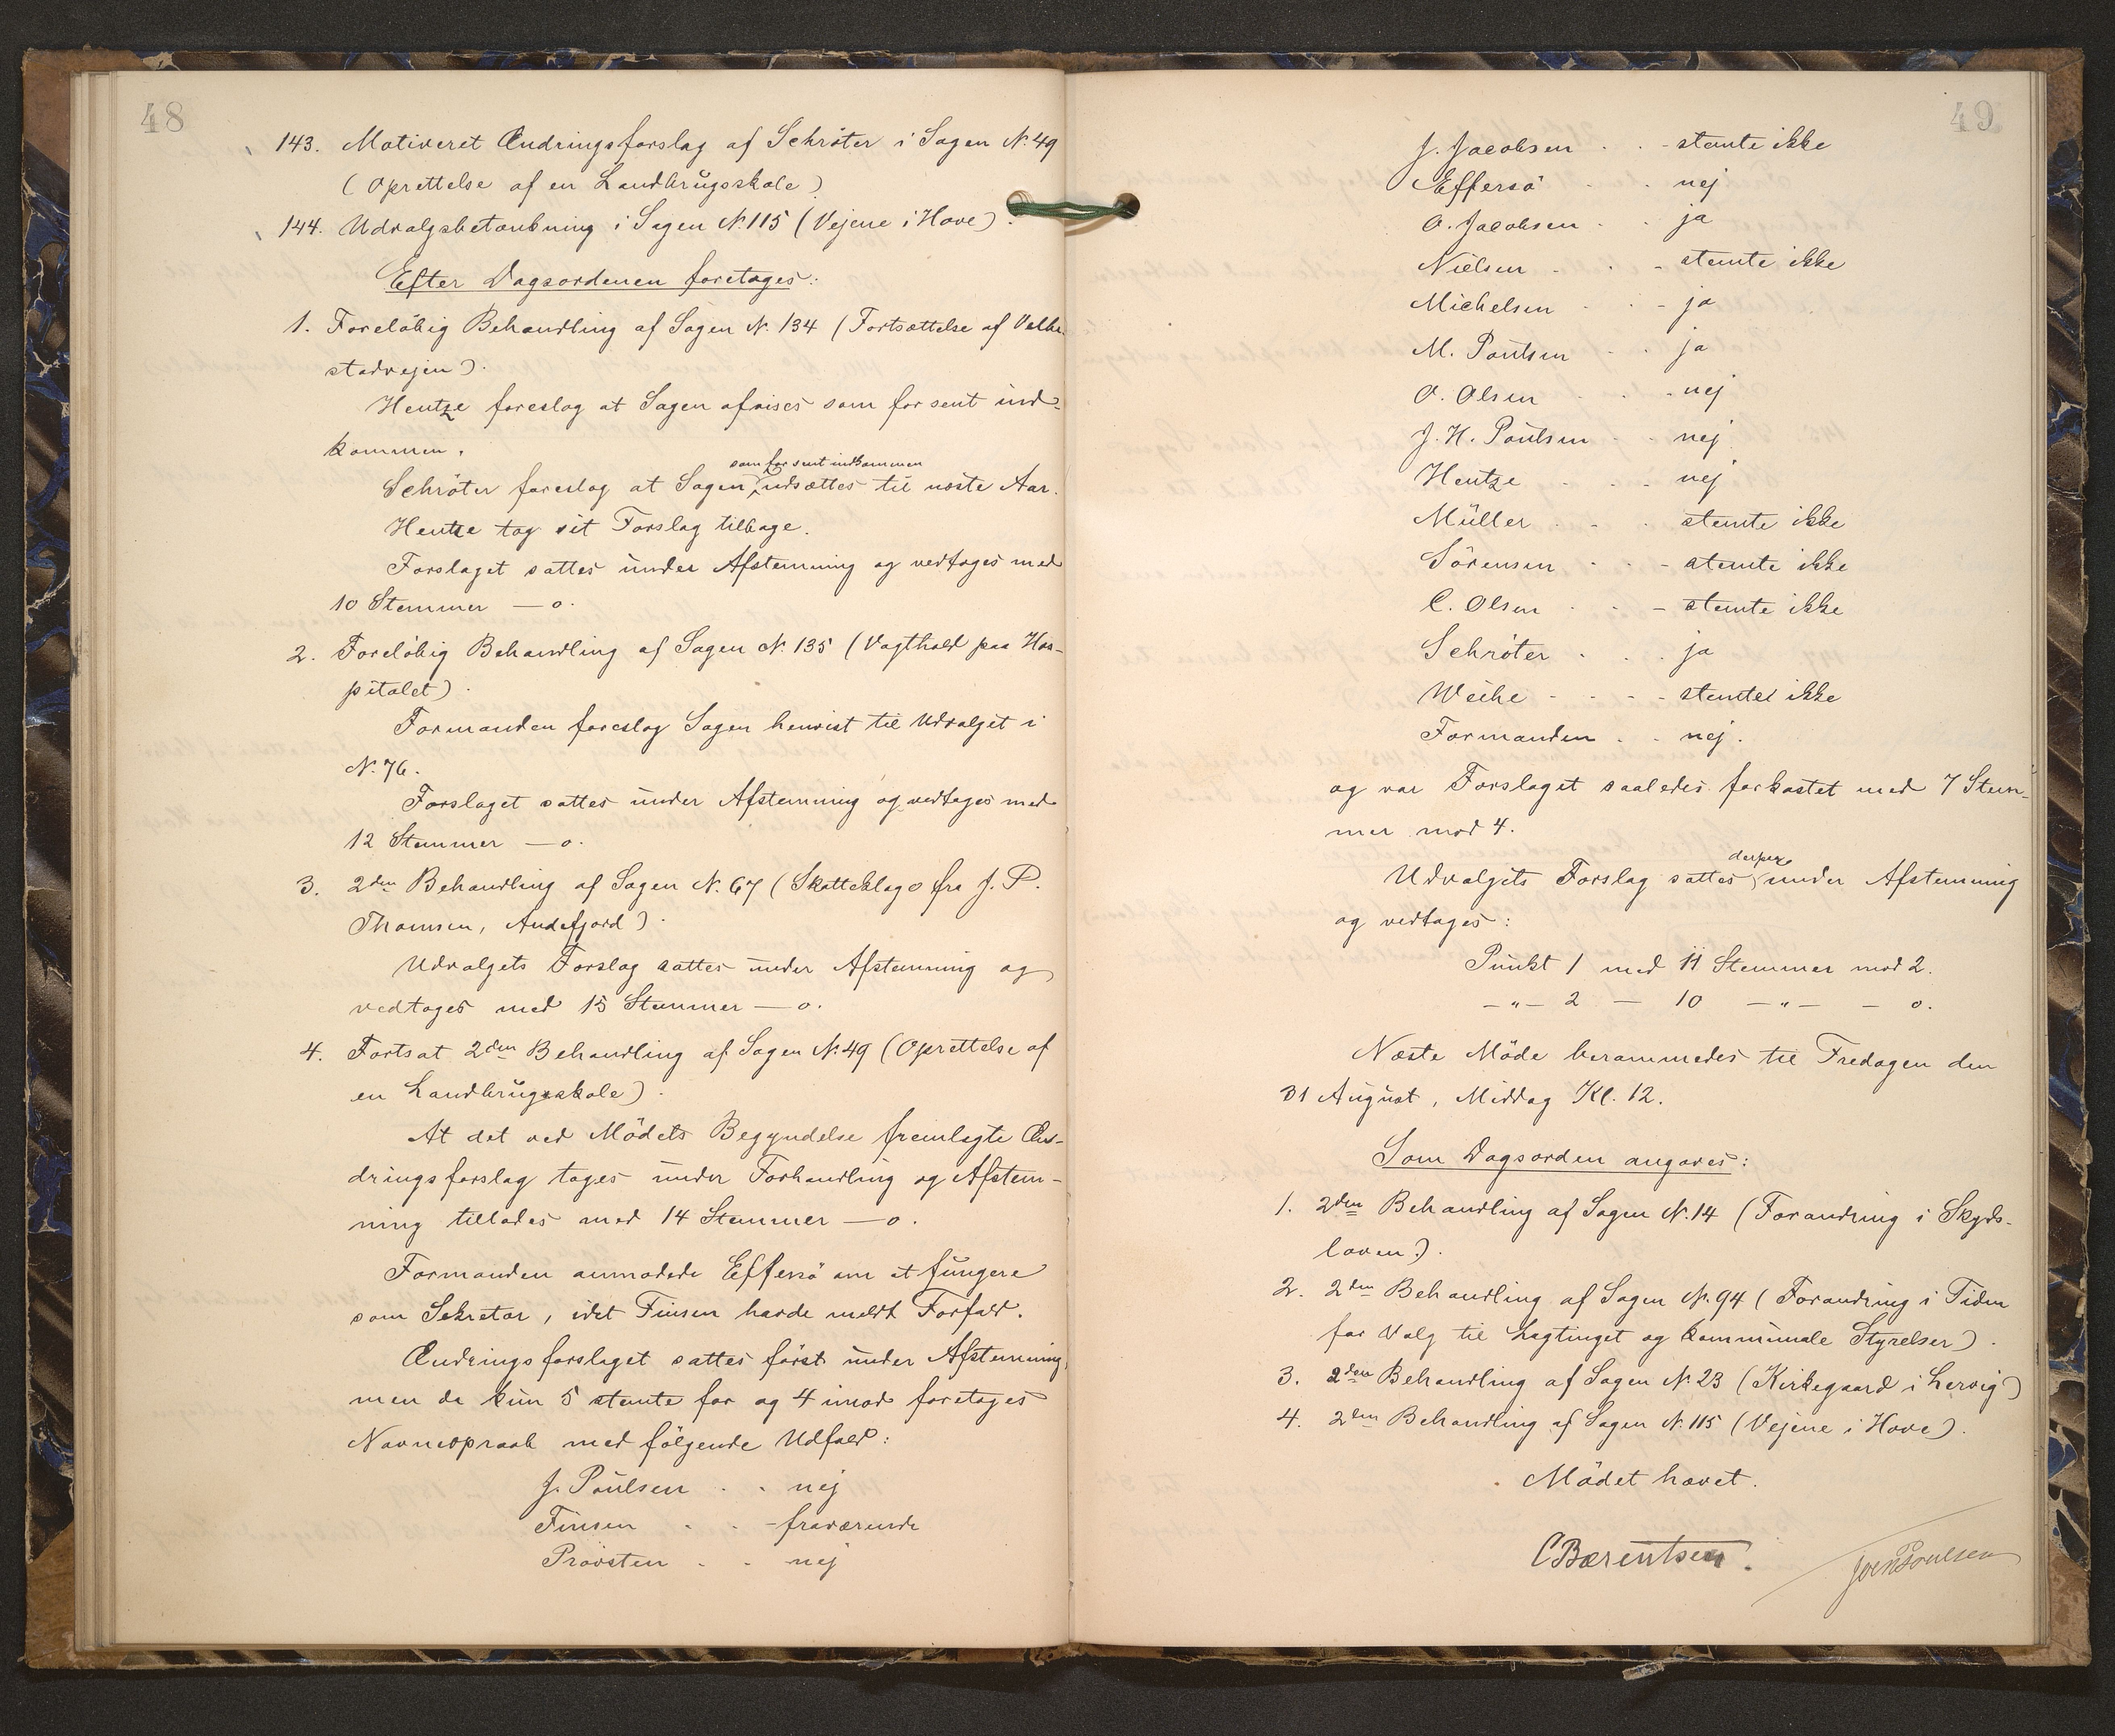 48
143. Motiveret Ændringsforslag af Schröter i Sagen N. 49
(Oprettelse af en Landbrugsskole)
144. Udvalgsbetænkning i Sagen N. 115 (Vejene i Hove).
Efter Dagsordenen foretoges:
1. Foreløbig Behandling af Sagen N. 134 (Fortsættelse af Velbe-
stadvejen).
Hentze foreslog at Sagen afvises som for sent ind-
kommen.
som for sent indkommen
Schröter foreslog at Sagen udsættes til næste Aar.
Hentze tog sit Forslag tilbage.
Forslaget sattes under Afstemning og vedtoges med
10 Stemmer — 0.
2. Foreløbig Behandling af Sagen N. 135 (Vagthold paa Hos-
pitalet).
Formanden foreslog Sagen henvist til Udvalget i
N. 76.
Forslaget sattes under Afstemning og vedtoges med
12 Stemmer — 0.
3. 2den Behandling af Sagen N. 67 (Skatteklage fra J. P.
Thomsen, Andefjord).
Udvalgets Forslag sattes under Afstemning og
vedtoges med 15 Stemmer — 0.
4. Fortsat 2den Behandling af Sagen N. 49 (Oprettelse af
en Landbrugsskole).
At det ved Mödets Begyndelse fremlagte Æn-
dringsforslag toges under Forhandling og Afstem-
ning tillodes med 14 Stemmer — 0.
Formanden anmodede Effersö om at fungere
som Sekretær, idet Finsen havde meldt Forfald.
Ændringsforslaget sattes först under Afstemning,
men da kun 5 stemte for og 4 imod foretoges
Navneopraab med fölgende Udfald:
J. Poulsen . . nej
Finsen . . - fraværende
Provsten . . nej
49
J. Jacobsen . . - stemte ikke
Effersö . . nej
O. Jacobsen . . ja
Nielsen . . - stemte ikke
Michelsen . . - ja
M. Poulsen . . ja
O. Olsen . . - nej
J. H. Poulsen . . nej
Hentze . . . nej
Müller . . . stemte ikke
Sörensen . . - stemte ikke
C. Olsen . . - stemte ikke
Schröter . . . ja
Weihe - - - - stemte ikke
Formanden . . nej.
og var Forslaget saaledes forkastet med 7 Stem-
mer mod 4.
derpaa
Udvalgets Forslag sattes under Afstemning
og vedtoges:
Punkt 1 med 11 Stemmer mod 2.
—„— 2 — 10 —„— — 0.
Næste Möde berammedes til Fredagen den
31 August, Middag Kl. 12.
Som Dagsorden angaves:
1. 2den Behandling af Sagen N. 14 (Forandring i Skyds-
loven).
2. 2den Behandling af Sagen N. 94 (Forandring i Tiden
for Valg til Lagtinget og kommunale Styrelser).
3. 2den Behandling af Sagen N. 23 (Kirkegaard i Lervig)
4. 2den Behandling af Sagen N. 115 (Vejene i Hove).
Mödet hævet.
CBærentsen.
Joen Poulsen